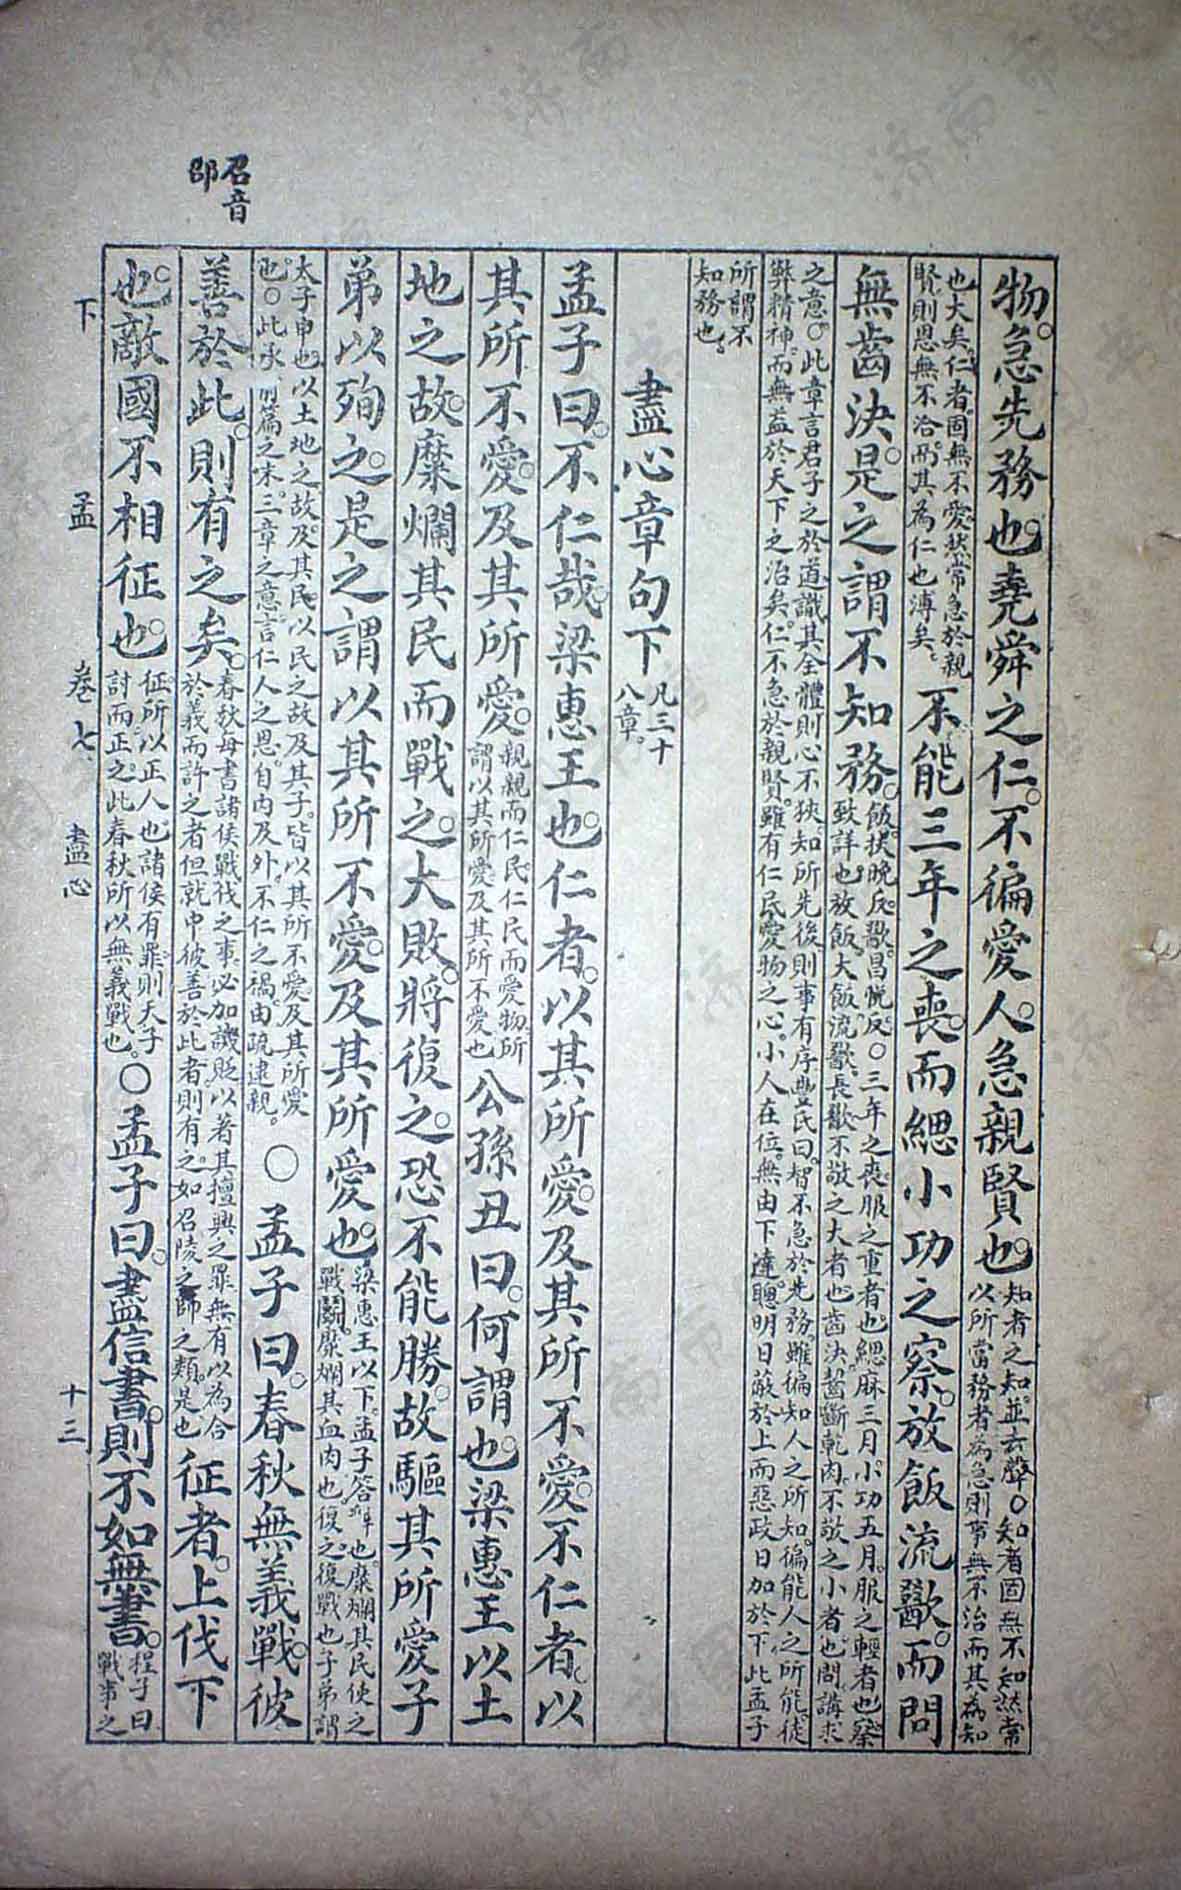 召音
邵
物。急先務也。堯舜之仁。不徧愛人。急親賢也。知者之知。並去聲。○知者固無不知然常以所當務者為急則事無不治而其為知
也大矣。仁者。固無不愛。然常急於親賢。則恩無不洽。而其為仁也溥矣。不能三年之喪。而緦小功之察。放飯流歠。而問
無齒決。是之謂不知務。飯。扶晚反。歠。昌悅反。○三年之喪。服之重者也。緦麻三月。小功五月。服之輕者也。察致詳也。放飯。大飯。流歠。長歠。不敬之大者也。齒決。齧斷乾肉。不敬之小者也。問講求
之意。○此章言君子之於道。識其全體則心不狹。知所先後則事有序。豐氏曰。智不急於先務。雖徧知人之所知。徧能人之所能。徒弊精神。而無益於天下之治矣。仁不急於親賢。雖有仁民愛物之心。小人在位。無由下達。聰明日蔽於上而惡政日加於下此孟子
所謂不知務也。
盡心章句下凡三十八章。
孟子曰。不仁哉。梁惠王也。仁者。以其所愛。及其所不愛。不仁者。以
其所不愛。及其所愛。親親而仁民。仁民而愛物。所謂以其所愛及其所不愛也公孫丑曰。何謂也。梁惠王以土
地之故。糜爛其民而戰之。大敗。將復之。恐不能勝。故驅其所愛子
弟以殉之。是之謂以其所不愛。及其所愛也。梁惠王以下。孟子答辭也。糜爛其民使之戰鬭。糜爛其血肉也。復之。復戰也。子弟謂
太子申也。以土地之故。及其民。以民之故及其子。皆以其所不愛。及其所愛也。○此承前篇之末。三章之意。言仁人之恩。自內及外。不仁之禍。由疏逮親。○孟子曰。春秋無義戰。彼
善於此。則有之矣。春秋每書諸侯戰伐之事。必加譏貶。以著其擅興之罪無有以為合於義而許之者但就中彼善於此者則有之。如召陵之師之類。是也征者。上伐下
也。敵國不相征也。征。所以正人也。諸侯有罪。則天子討而正之。此春秋所以無義戰也。○孟子曰。盡信書。則不如無書。程子曰戰事之
下
孟
卷七
盡心
十三